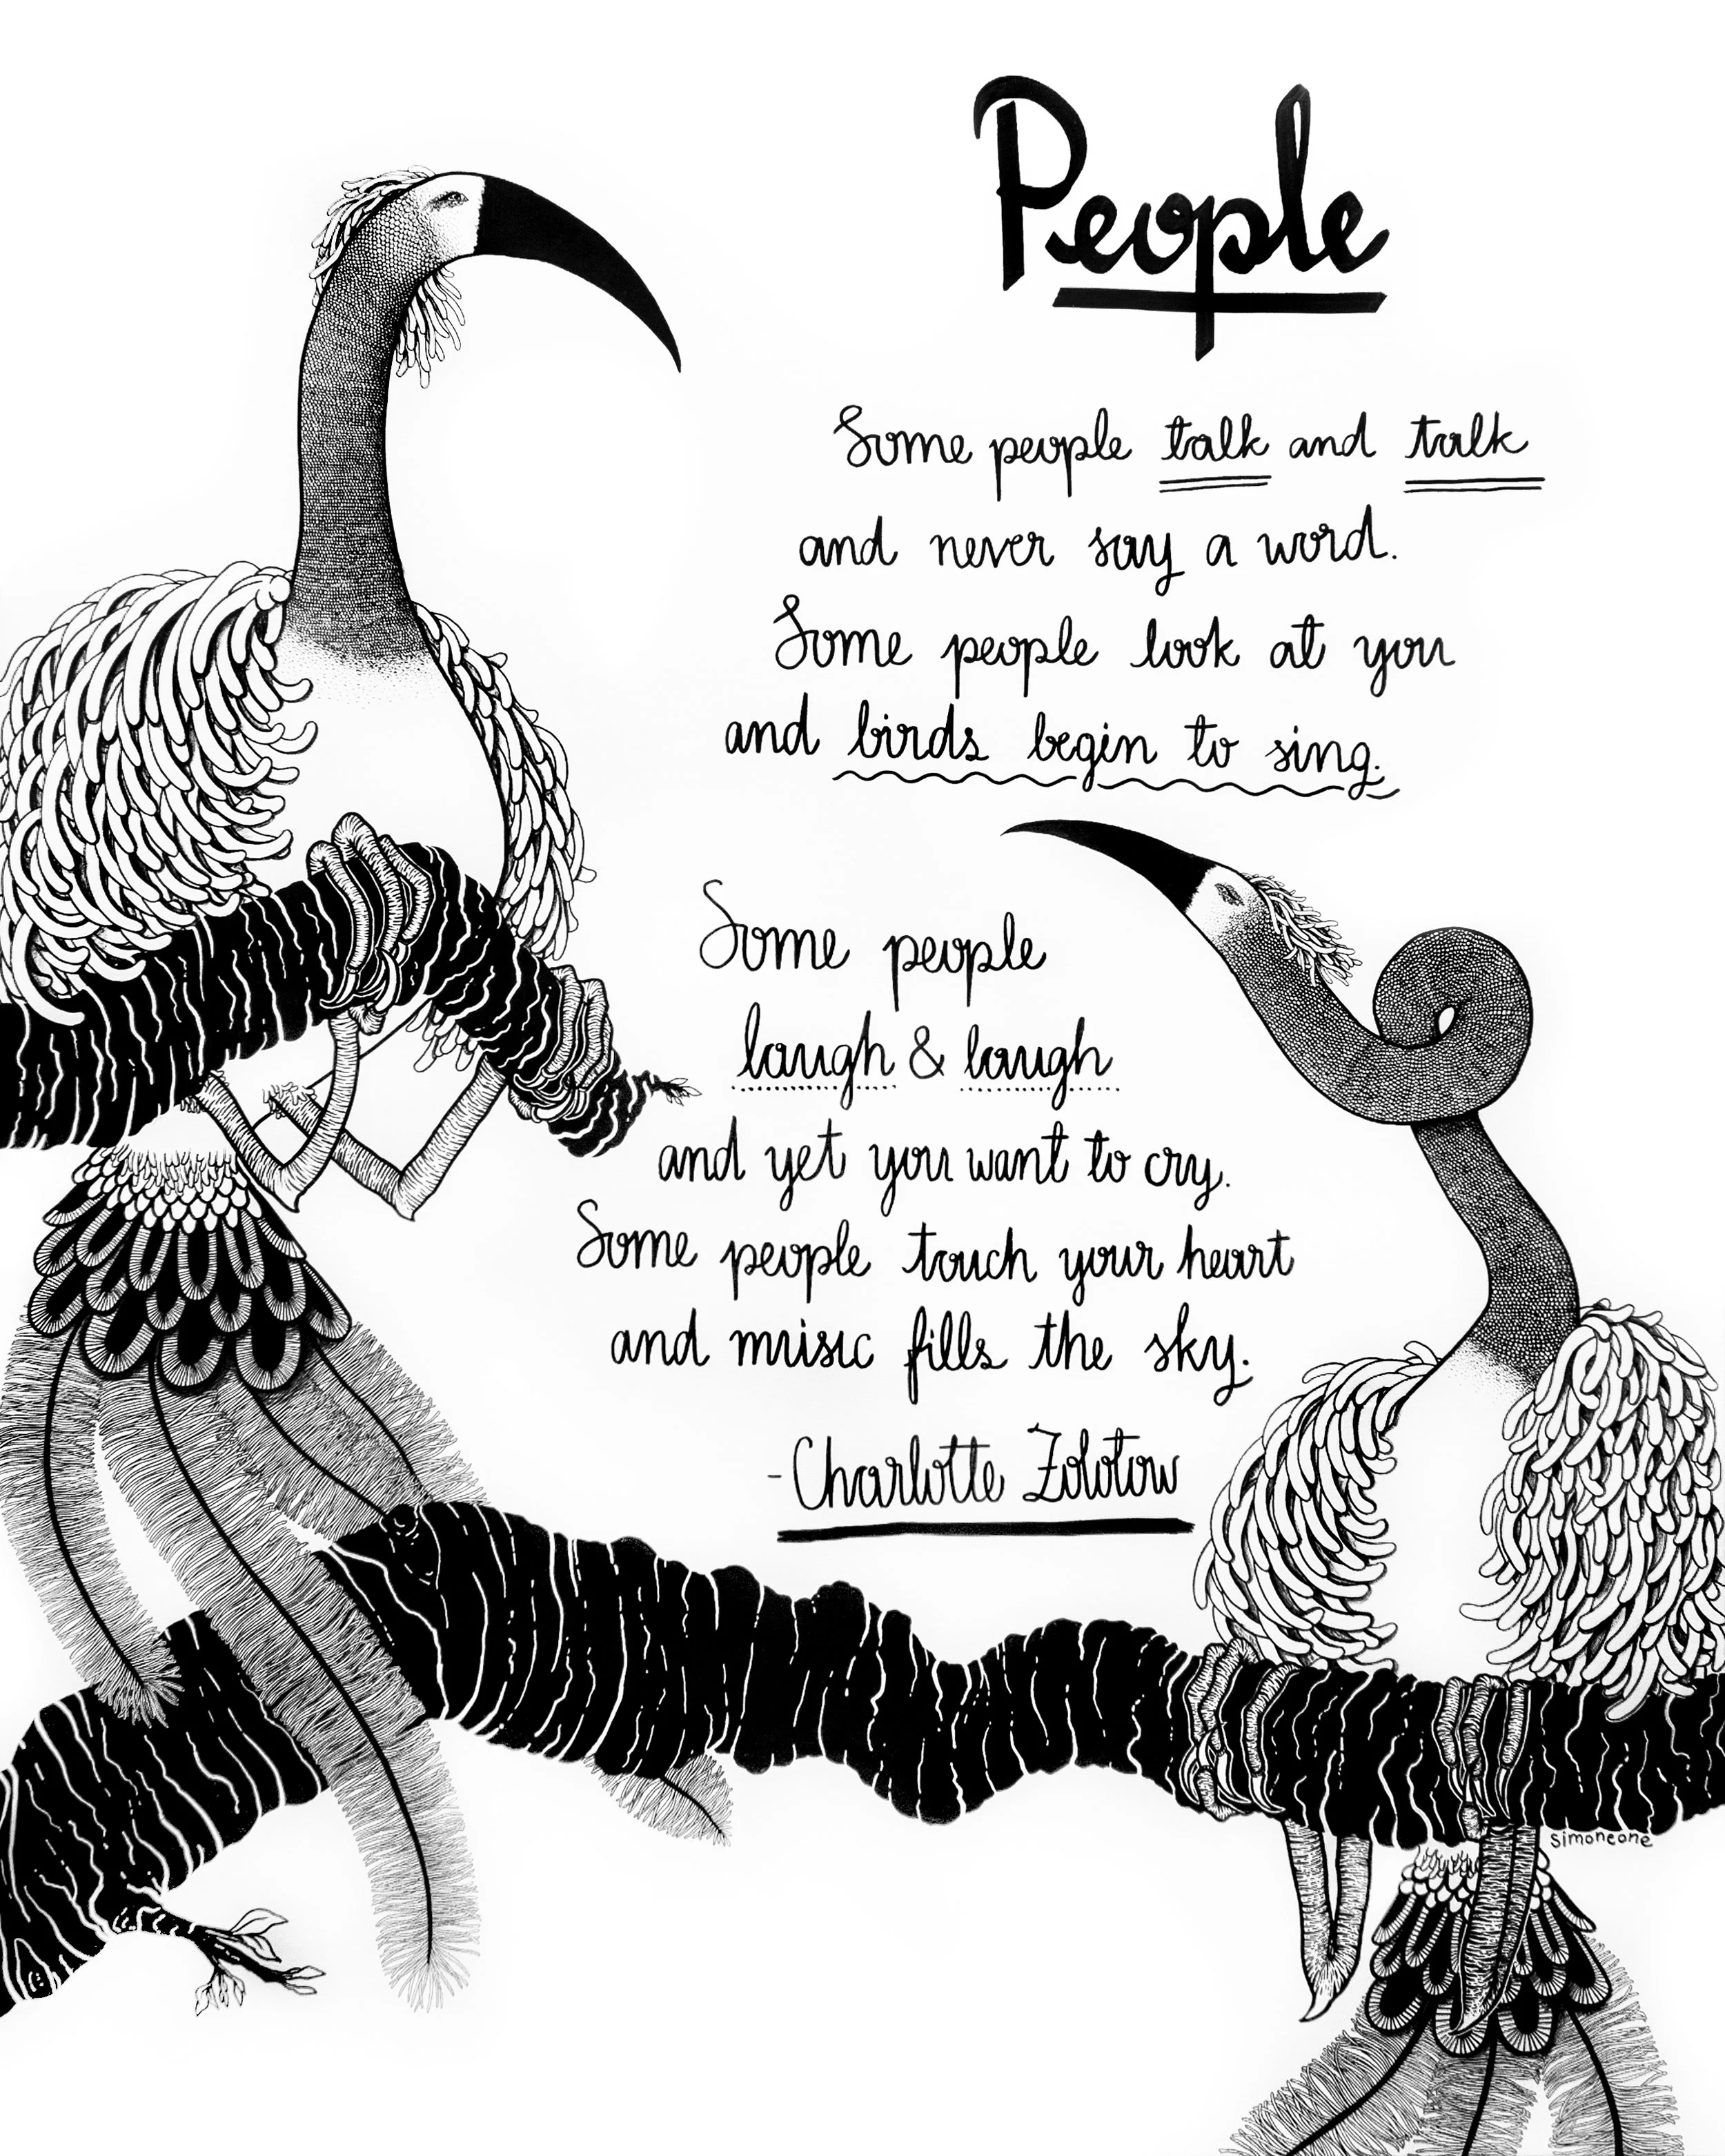 People
Some people talk and talk
and never say a word.
Some people look at you
and birds begin to sing.
Some people
laugh & laugh
and yet you want to cry.
Some people touch your heart
and music fills the sky.
-Charlotte Zolotow
simoneone